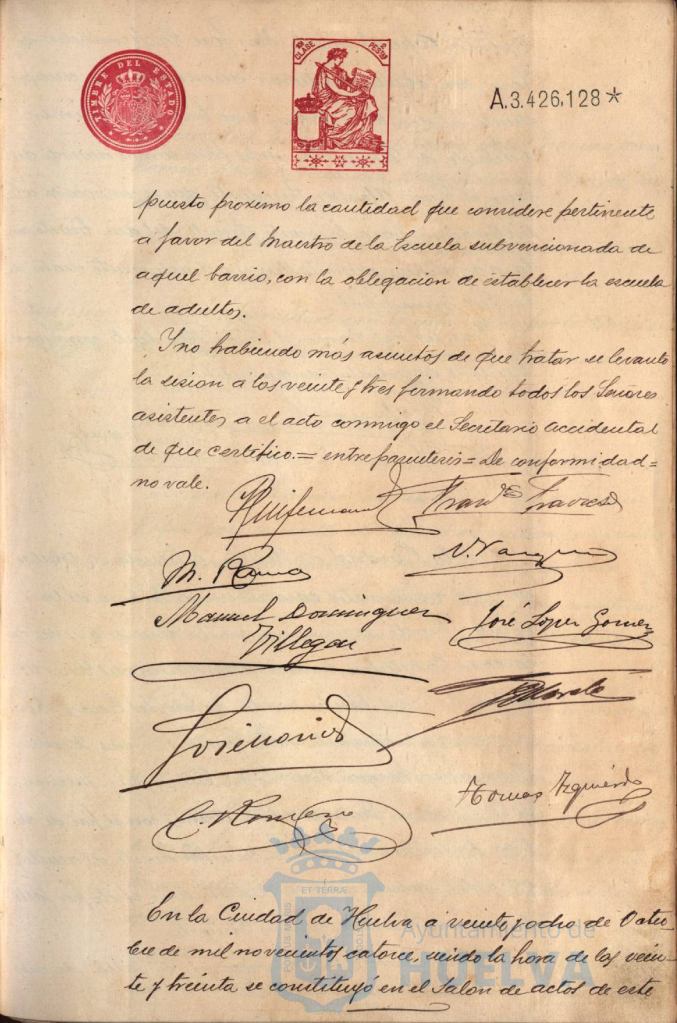 TIMBRE DEL ESTADO
10ª CLASE 2 PESTAS
A.3.426,128*
puesto próximo la cantidad que considere pertinente
a favor del Maestro de la Escuela subvencionada de
aquel barrio, con la obligación de establecer la escuela
de adultos.
Y no habiendo más asuntos de que tratar se levantó
la sesión a las veinte y tres firmando todos los Señores
asistentes a el acto conmigo el Secretario accidental
de que certifico.= entreparentesis = De conformidad =
no vale.
M. Rama
N. Vazquez
Manuel Dominguez
Villegas
José Lopez Gomez
C. Romero
Tomas Izquierdo
ET TERRÆ
En la Ciudad de Huelva a veinte y ocho de Octu-
bre de mil novecientos catorce, siendo la hora de las vein-
te y treinta se constituyó en el Salón de actos de este
Ayuntamiento de
HUELVA